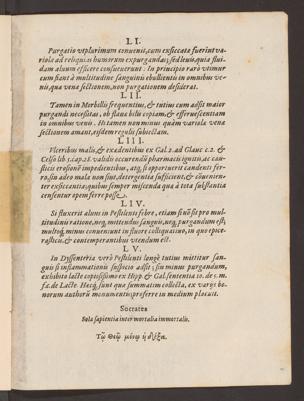 LI.
Purgatio vtplurimum conuenit, cum exsiccata fuerint va-
riola ad reliquias humorum expurgandas, sed leuis, quia flui-
dam aluum efficere consueuerunt: In principio raro vtimur
cum fiant à multitudine sanguinis ebullientis in omnibus ve-
nis, qua vena sectionem, non purgationem desiderat.
LII.
Tamen in Morbillis frequentius, & tutius cum adsit maior
purgandi necessitas, ob flaua bilis copiam, & efferuescentiam
in omnibus venis. Hi tamen non minus quàm variola vena
sectionem amant, eisdem regulis subiectam.
LIII.
Vlceribus malis, & exedentibus ex Gal. 2. ad Glauc. c. 2. &
Celso lib. 5. cap. 28. validis occurrendū pharmacis ignitis, ac cau-
sticis erosionē impedientibus,, atq, si opportuerit candenti fer-
ro, sin adeo mala non sint, detergentia sufficient, & cōuenien-
ter exsiccantia; quibus semper miscenda qua à tota substantia
censentur opem ferre posse.
LIV.
Si fluxerit aluus in Pestilenti febre, etiam si nō sit pro mul-
titudinis ratione, neq, mittendus sanguis, neq, purgandum est,
multoq, minus conueniunt in fluore colliquatiuo, in quo epice-
rasticis, & contemperantibus vtendum est.
LV.
In Dyssenteria verò Pestilenti longè tutius mittitur san-
guis si inflammationis suspicio adsit; sin minus purgandum,
exhibito lacte copiosissimo ex Hipp. & Gal. sententia 10. de s. m.
fa. de Lacte. Hecq, sunt quæ summatim collecta, ex varijs bo-
norum authorū monumentis proferre in medium placuit.
Socrates
Sola sapientia inter mortalia immortalis.
Τῷ Θεῷ μόνῳ ἡ δόξα.